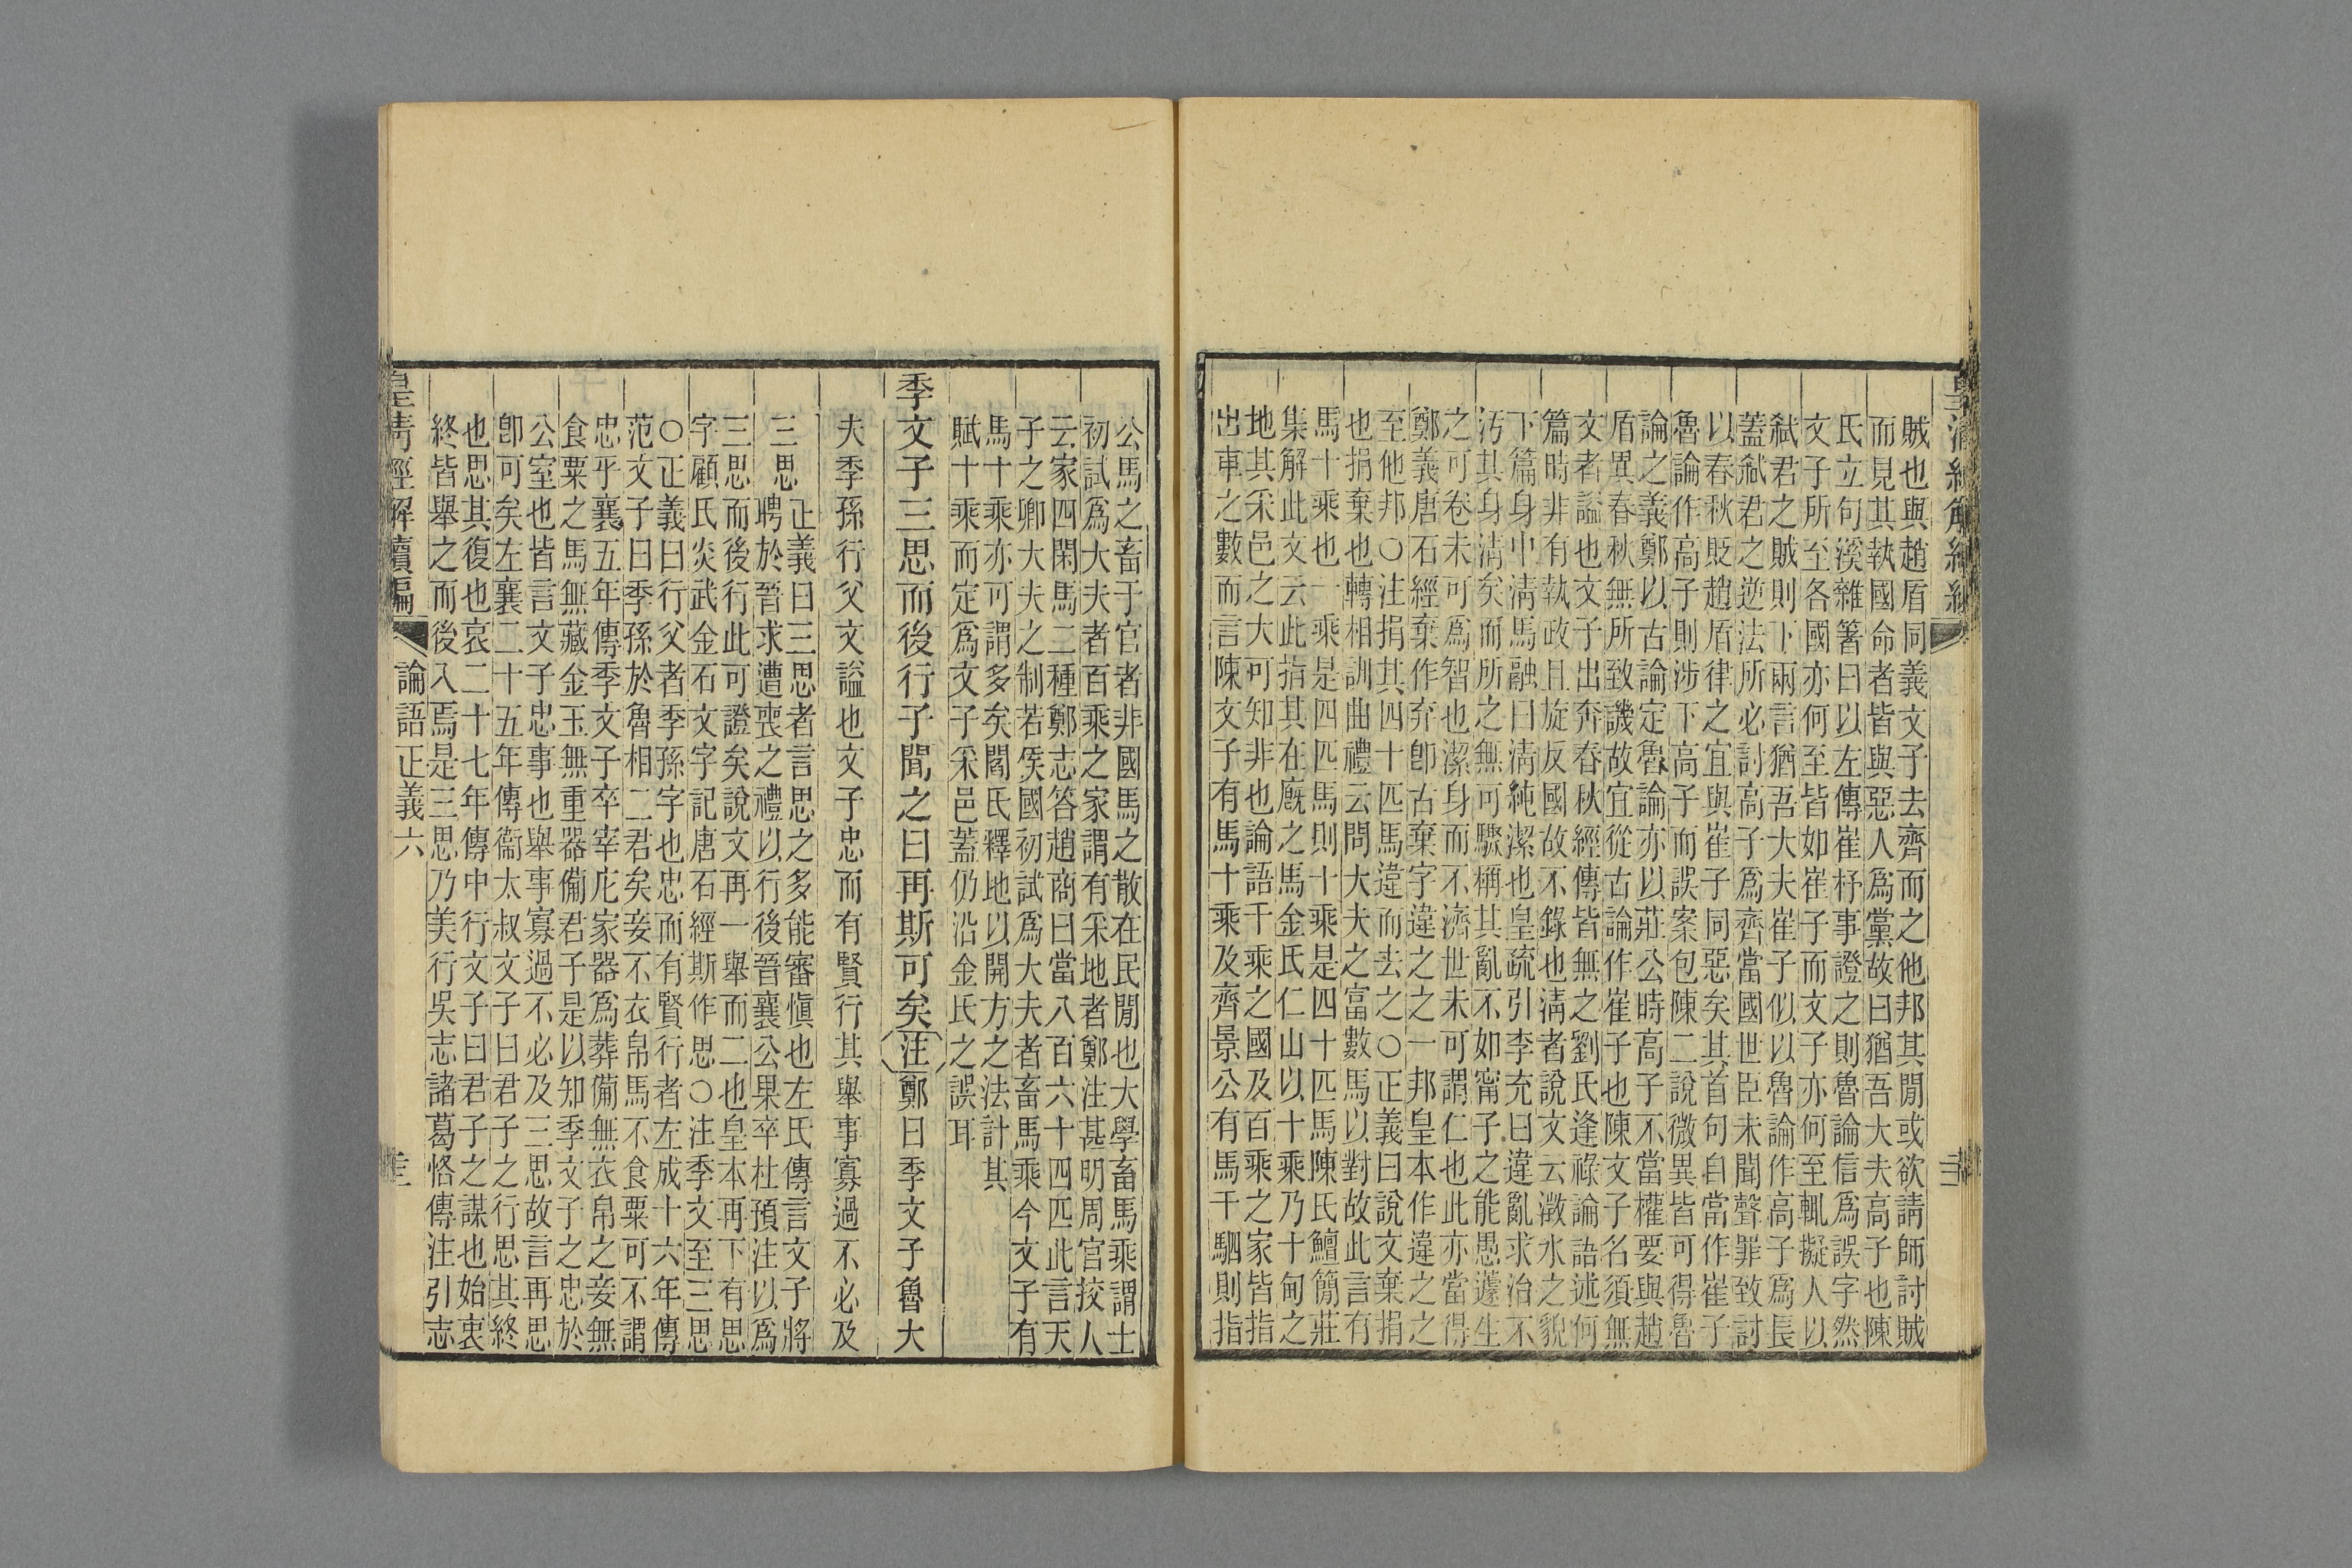 賊也與趙盾同義文子去齊而之他邦其閒或欲請師討賊
而見其執國命者皆與惡人爲黨故曰猶吾大夫高子也陳
氏立句溪雜箸曰以左傳崔杼事證之則魯論信爲誤字然
文子所至各國亦何至皆如崔子而文子亦何至輒擬人以
弑君之賊則下兩言猶吾大夫崔子似以魯論作高子爲長
蓋弑君之逆法所必討高子爲齊當國世臣未聞聲罪致討
以春秋貶趙盾律之宜與崔子同惡矣其首句自當作崔子
魯論作高子則涉下高子而誤案包陳二說微異皆可得魯
論之義鄭以古論定魯論亦以莊公時高子不當權要與趙
盾異春秋無所致譏故宜從古論作崔子也陳文子名須無
文者謚也文子出奔春秋經傳皆無之劉氏逢祿論語述何
篇時非有執政且旋反國故不錄也淸者說文云澂水之貌
下篇身中淸馬融曰淸純潔也皇疏引李充曰違亂求治不
汚其身淸矣而所之無可驟稱其亂不如甯子之能愚蘧生
之可卷未可爲智也潔身而不濟世未可謂仁也此亦當得
鄭義唐石經棄作弃卽古棄字違之之一邦皇本作違之之
至他邦○注捐其四十匹馬違而去之○正義曰說文棄捐
也捐棄也轉相訓曲禮云問大夫之富數馬以對故此言有
馬十乘也一乘是四匹馬則十乘是四十匹馬陳氏鱣簡莊
集解此文云此指其在廐之馬金氏仁山以十乘乃十甸之
地其采邑之大可知非也論語千乘之國及百乘之家皆指
出車之數而言陳文子有馬十乘及齊景公有馬千駟則指
公馬之畜于官者非國馬之散在民閒也大學畜馬乘謂士
初試爲大夫者百乘之家謂有采地者鄭注甚明周官挍人
云家四閑馬二種鄭志答趙商曰當八百六十四匹此言天
子之卿大夫之制若侯國初試爲大夫者畜馬乘今文子有
馬十乘亦可謂多矣閻氏釋地以開方之法計其
賦十乘而定爲文子采邑蓋仍沿金氏之誤耳
季文子三思而後行子聞之曰再斯可矣注鄭曰季文子魯大
夫季孫行父文謚也文子忠而有賢行其舉事寡過不必及
三思正義曰三思者言思之多能審愼也左氏傳言文子將
聘於晉求遭喪之禮以行後晉襄公果卒杜預注以爲
三思而後行此可證矣說文再一舉而二也皇本再下有思
字顧氏炎武金石文字記唐石經斯作思○注季文至三思
○正義曰行父者季孫字也忠而有賢行者左成十六年傳
范文子曰季孫於魯相二君矣妾不衣帛馬不食粟可不謂
忠乎襄五年傳季文子卒宰庀家器爲葬備無衣帛之妾無
食粟之馬無藏金玉無重器備君子是以知季文子之忠於
公室也皆言文子忠事也舉事寡過不必及三思故言再思
卽可矣左襄二十五年傳衞太叔文子曰君子之行思其終
也思其復也哀二十七年傳中行文子曰君子之謀也始衷
終皆舉之而後入焉是三思乃美行吳志諸葛恪傳注引志
皇淸經解續編
論語正義六